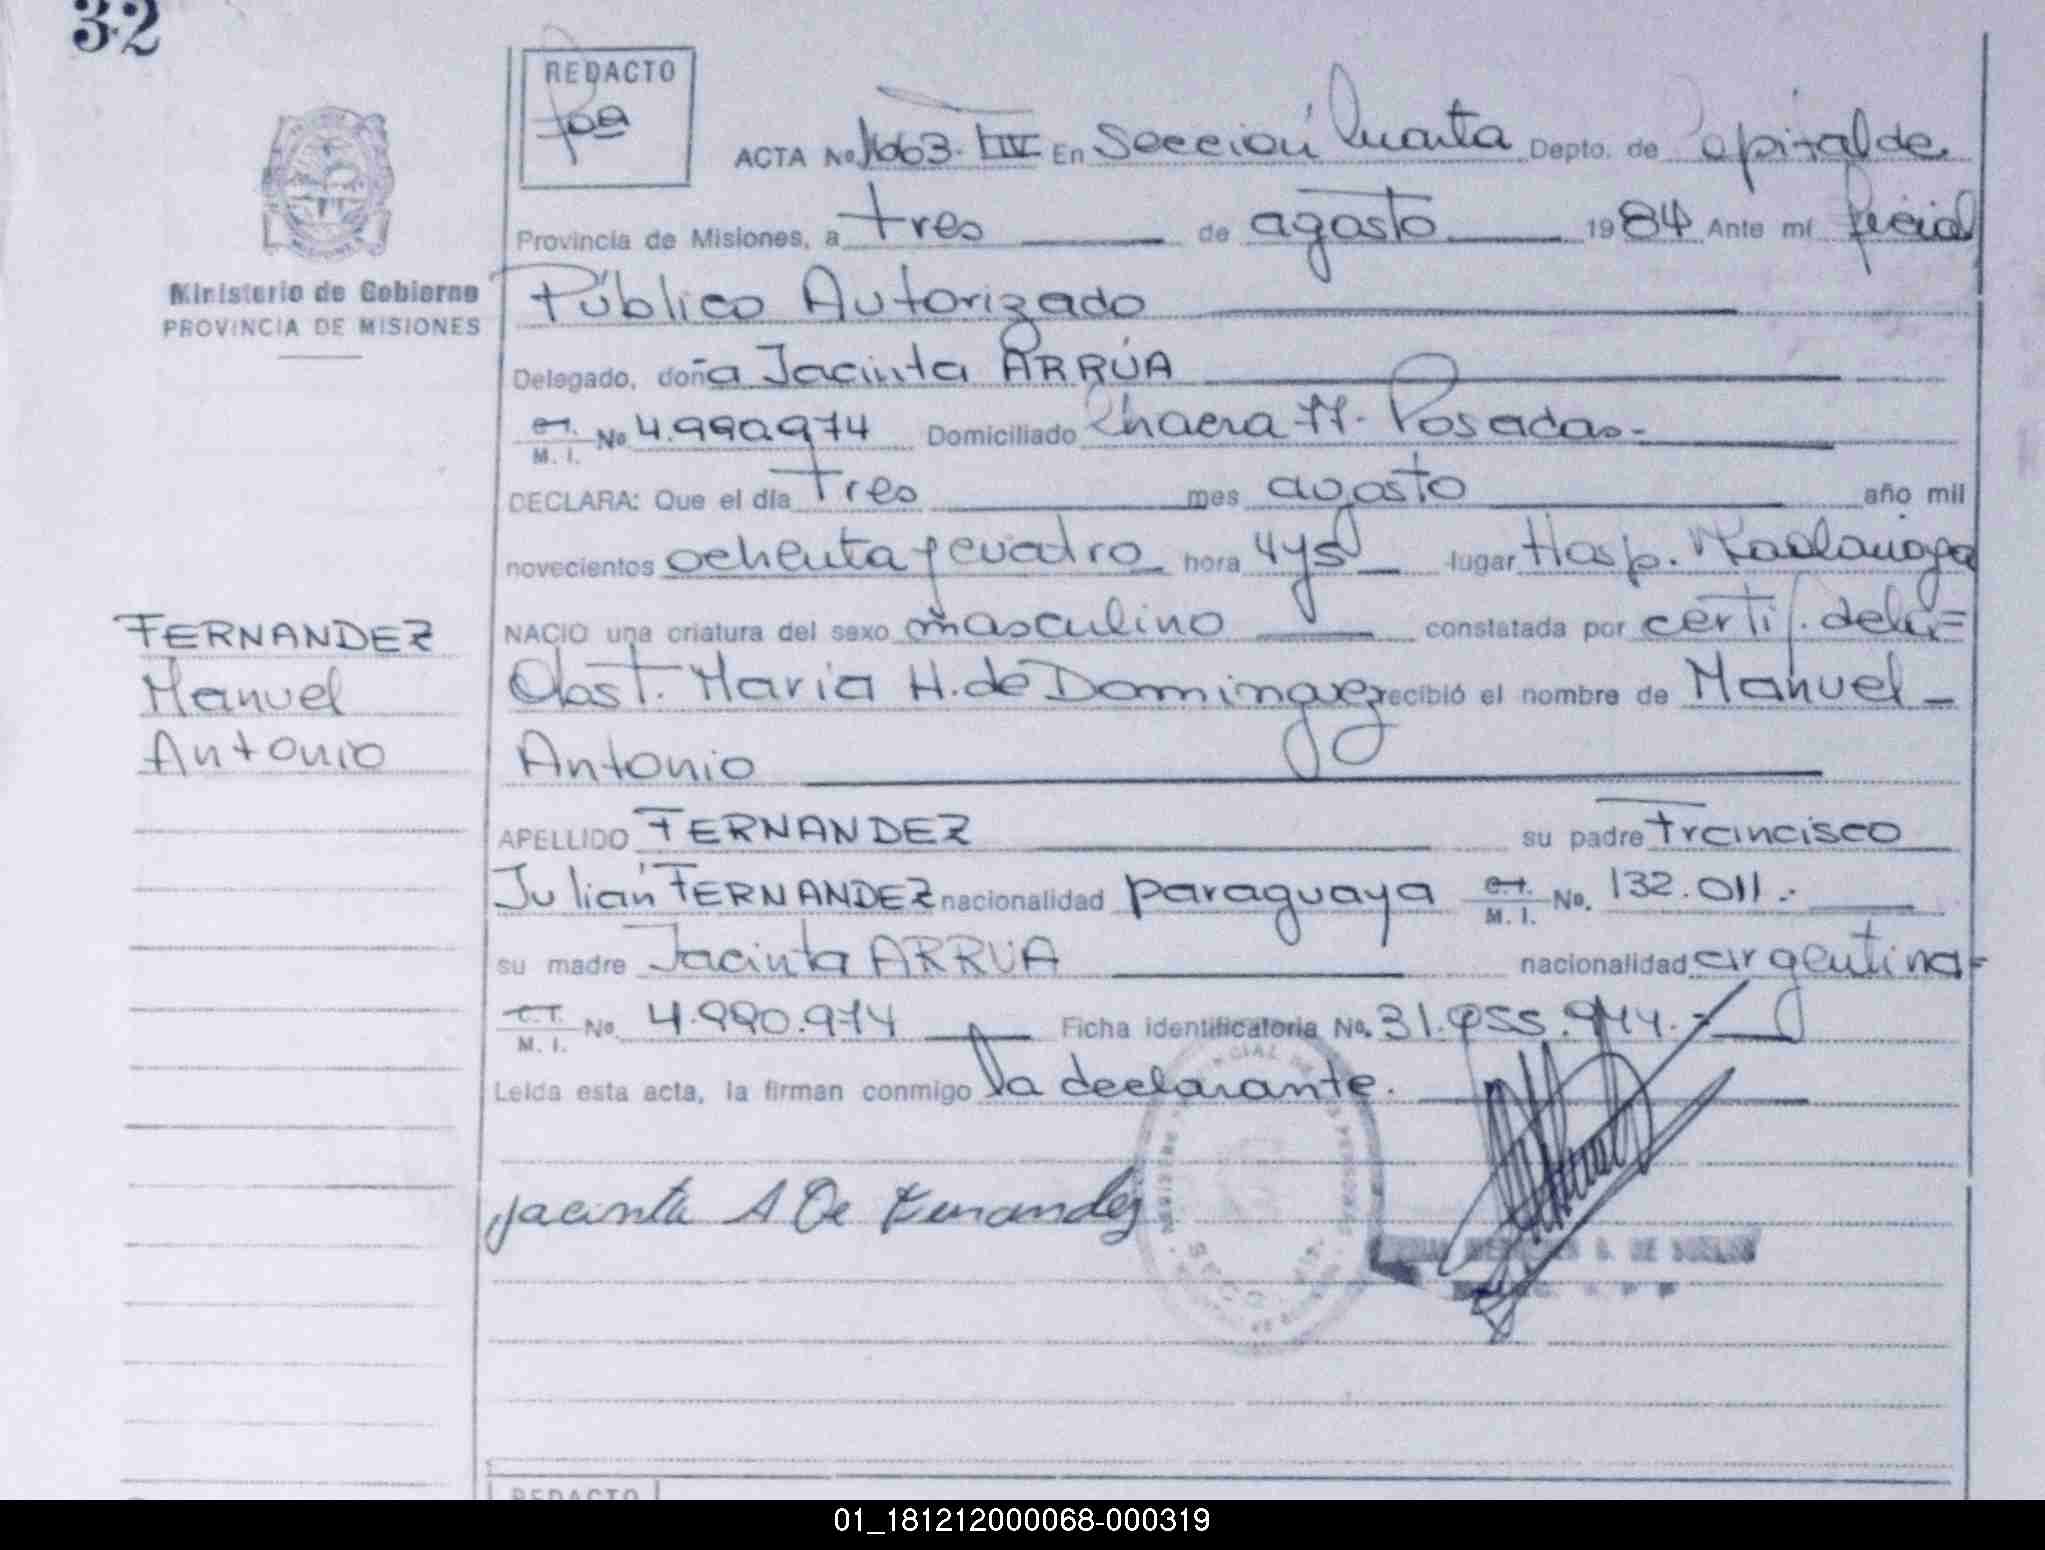 32
REDACTO
Ministerio de Gobierno
PROVINCIA DE MISIONES
FERNANDEZ
Manuel
Antonio
ACTA No 1663. En Sección Cuarta Depto. de Capital de
Provincia de Misiones, a tres de agosto 1984 Ante mí Oficial
Público Autorizado
Delegado, doña Jacinta ARRÚA
M. I. No 4.990.974 Domiciliado Chacra 77. Posadas.-
DECLARA: Que el día tres mes agosto año mil
novecientos ochenta y cuatro hora 4 y 5 lugar Hosp. Madariaga
NACIO una criatura del sexo masculino constatada por certif. de la=
Obst. Maria H. de Dominguez recibió el nombre de Manuel -
Antonio
APELLIDO FERNANDEZ su padre Francisco
Julián FERNANDEZ nacionalidad paraguaya C.I. M. I. No. 132.011.-
su madre Jacinta ARRUA nacionalidad argentina=
M. I. No. 4.990.974 Ficha identificatoria No. 31.955.944.-
Leída esta acta, la firman conmigo la declarante.
Jacinta A De Fernandez
REDACTO
01_181212000068-000319